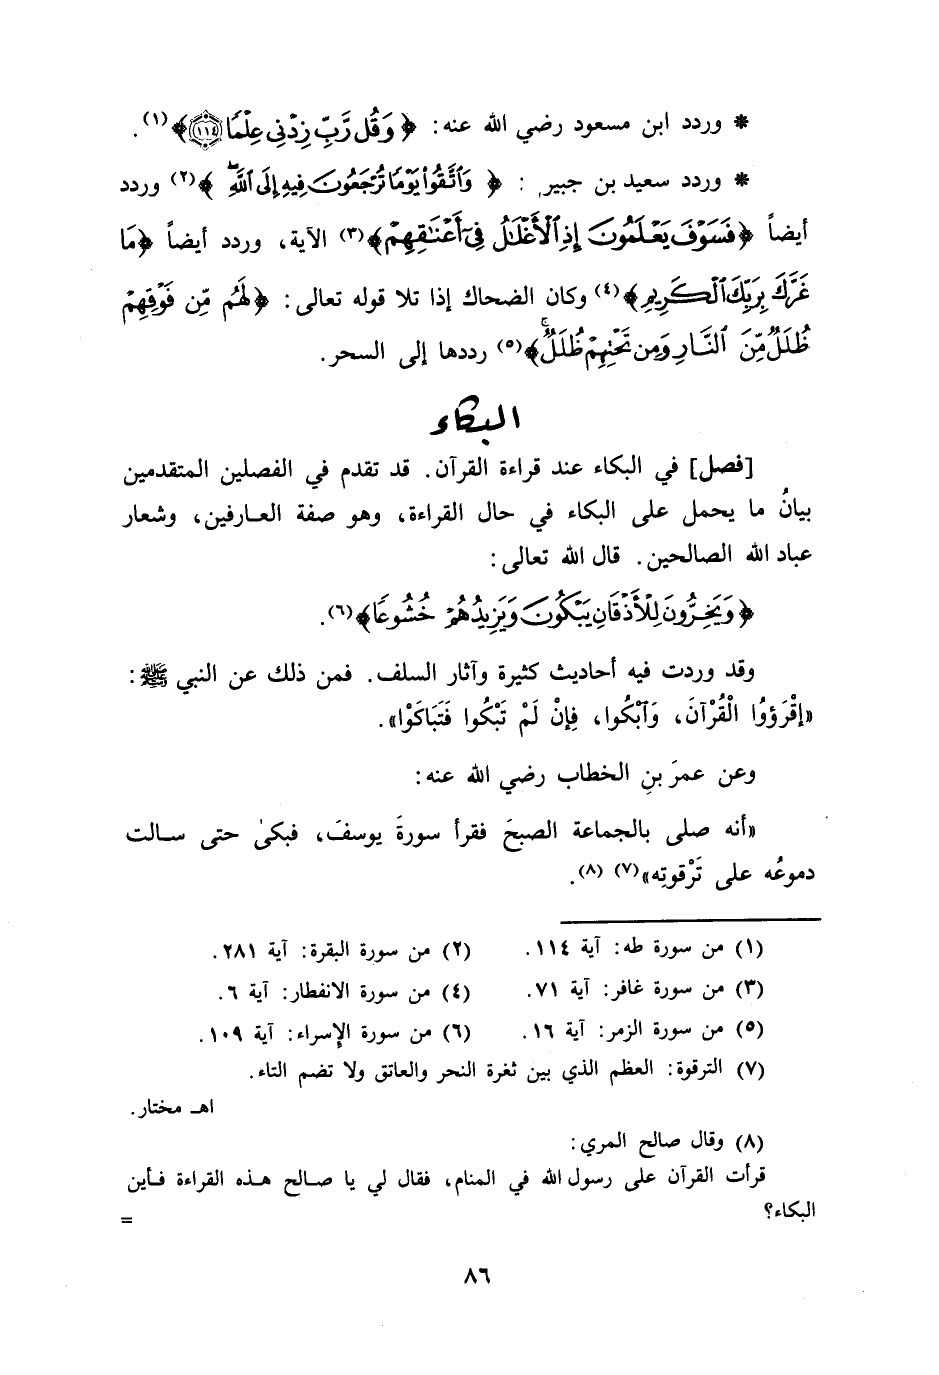 * وردد ابن مسعود رضي الله عنه: ﴿ وَقُل رَّبِّ زِدْنِى عِلْمًا ﴿١١٤﴾﴾(١).
* وردد سعيد بن جبير : ﴿ وَٱتَّقُوا۟ يَوْمًا تُرْجَعُونَ فِيهِ إِلَى ٱللَّهِ ﴾(٢) وردد
أيضاً ﴿فَسَوْفَ يَعْلَمُونَ إِذِ ٱلْأَغْلَٰلُ فِىٓ أَعْنَٰقِهِمْ﴾(٣) الآية، وردد أيضاً ﴿مَا
غَرَّكَ بِرَبِّكَ ٱلْكَرِيمِ﴾(٤) وكان الضحاك إذا تلا قوله تعالى: ﴿لَهُم مِّن فَوْقِهِمْ
ظُلَلٌ مِّنَ ٱلنَّارِ وَمِن تَحْتِهِمْ ظُلَلٌ﴾(٥) رددها إلى السحر.
البكاء
[فصل] في البكاء عند قراءة القرآن. قد تقدم في الفصلين المتقدمين
بيانُ ما يحمل على البكاء في حال القراءة، وهو صفة العارفين، وشعار
عباد الله الصالحين. قال الله تعالى:
﴿وَيَخِرُّونَ لِلْأَذْقَانِ يَبْكُونَ وَيَزِيدُهُمْ خُشُوعًا﴾(٦).
وقد وردت فيه أحاديث كثيرة وآثار السلف. فمن ذلك عن النبي ﷺ:
«إقْرَؤوُا الْقُرْآنَ، وَآبْكُوا، فِإنْ لَمْ تَبْكُوا فَتَبَاكَوْا».
وعن عمرَ بنِ الخطاب رضي الله عنه:
«أنه صلى بالجماعة الصبحَ فقرأ سورةَ يوسفَ، فبكىٰ حتى سالت
دموعُه على تَرْقوتِه»(٧) (٨).
(١) من سورة طه: آية ١١٤. (٢) من سورة البقرة: آية ٢٨١.
(٣) من سورة غافر: آية ٧١. (٤) من سورة الانفطار: آية ٦.
(٥) من سورة الزمر: آية ١٦. (٦) من سورة الإسراء: آية ١٠٩.
(٧) الترقوة: العظم الذي بين ثغرة النحر والعاتق ولا تضم التاء.
اهـ مختار.
(٨) وقال صالح المري:
قرأت القرآن على رسول الله في المنام، فقال لي يا صالح هذه القراءة فأين
البكاء؟ =
٨٦